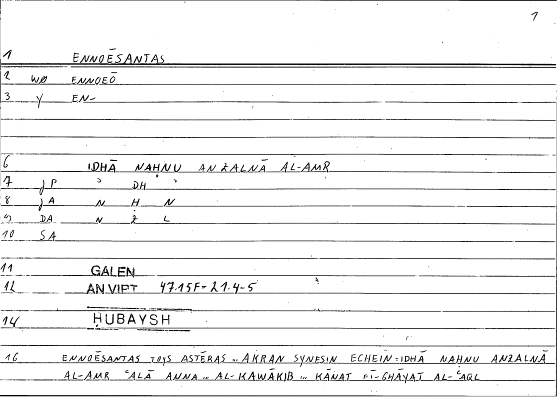 1
1 ENNOĒSANTAS
2 WO ENNOEŌ
3 Y EN-
6 IDHĀ NAHNU ANŻALNĀ AL-AMR
7 JP ʾ DH ʾ
8 JA N H N
9 DA N Ż L
10 SA
11 GALEN
12 AN.VIPT 47.15F-21.4-5
14 ḤUBAYSH
16 ENNOĒSANTAS TOYS ASTERAS .. AKRAN SYNESIN ECHEIN = IDHĀ NAHNU ANŻALNĀ
AL-AMR ʿALĀ ANNA .. AL-KAWĀKIB .. KĀNAT FĪ-GHĀYAT AL-ʿAQL